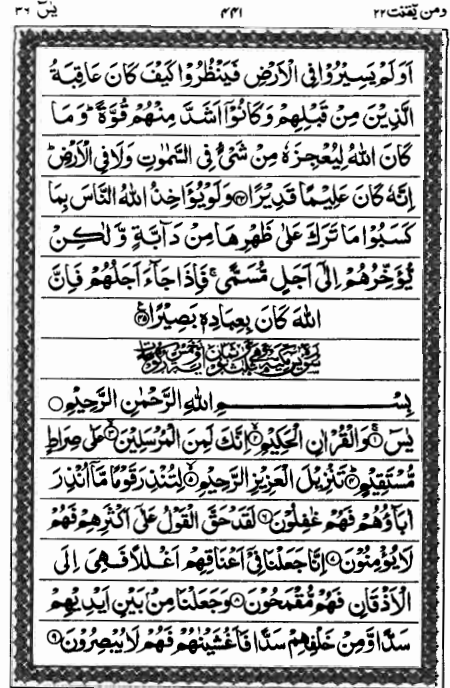 ومن یقنت ۲۲ ۴۴۱ یٰسٓ ۳۶
اَوَلَمْ يَسِيْرُوْا فِي الْاَرْضِ فَيَنْظُرُوْا كَيْفَ كَانَ عَاقِبَةُ
الَّذِيْنَ مِنْ قَبْلِهِمْ وَكَانُوْۤا اَشَدَّ مِنْهُمْ قُوَّةً ؕ وَمَا
كَانَ اللّٰهُ لِيُعْجِزَهٗ مِنْ شَيْءٍ فِي السَّمٰوٰتِ وَلَا فِي الْاَرْضِ ؕ
اِنَّهٗ كَانَ عَلِيْمًا قَدِيْرًا ﴿۴۴﴾ وَلَوْ يُؤَاخِذُ اللّٰهُ النَّاسَ بِمَا
كَسَبُوْا مَا تَرَكَ عَلٰى ظَهْرِهَا مِنْ دَآبَّةٍ وَّلٰكِنْ
يُّؤَخِّرُهُمْ اِلٰۤى اَجَلٍ مُّسَمًّى ۚ فَاِذَا جَآءَ اَجَلُهُمْ فَاِنَّ
اللّٰهَ كَانَ بِعِبَادِهٖ بَصِيْرًا ﴿۴۵﴾
بِسْمِ اللّٰهِ الرَّحْمٰنِ الرَّحِيْمِ ○
يٰسٓ ۚ﴿۱﴾ وَالْقُرْاٰنِ الْحَكِيْمِ ۙ﴿۲﴾ اِنَّكَ لَمِنَ الْمُرْسَلِيْنَ ۙ﴿۳﴾ عَلٰى صِرَاطٍ
مُّسْتَقِيْمٍ ؕ﴿۴﴾ تَنْزِيْلَ الْعَزِيْزِ الرَّحِيْمِ ۙ﴿۵﴾ لِتُنْذِرَ قَوْمًا مَّاۤ اُنْذِرَ
اٰبَآؤُهُمْ فَهُمْ غٰفِلُوْنَ ﴿۶﴾ لَقَدْ حَقَّ الْقَوْلُ عَلٰۤى اَكْثَرِهِمْ فَهُمْ
لَا يُؤْمِنُوْنَ ﴿۷﴾ اِنَّا جَعَلْنَا فِيْۤ اَعْنَاقِهِمْ اَغْلٰلًا فَهِيَ اِلَى
الْاَذْقَانِ فَهُمْ مُّقْمَحُوْنَ ﴿۸﴾ وَجَعَلْنَا مِنْۢ بَيْنِ اَيْدِيْهِمْ
سَدًّا وَّمِنْ خَلْفِهِمْ سَدًّا فَاَغْشَيْنٰهُمْ فَهُمْ لَا يُبْصِرُوْنَ ﴿۹﴾